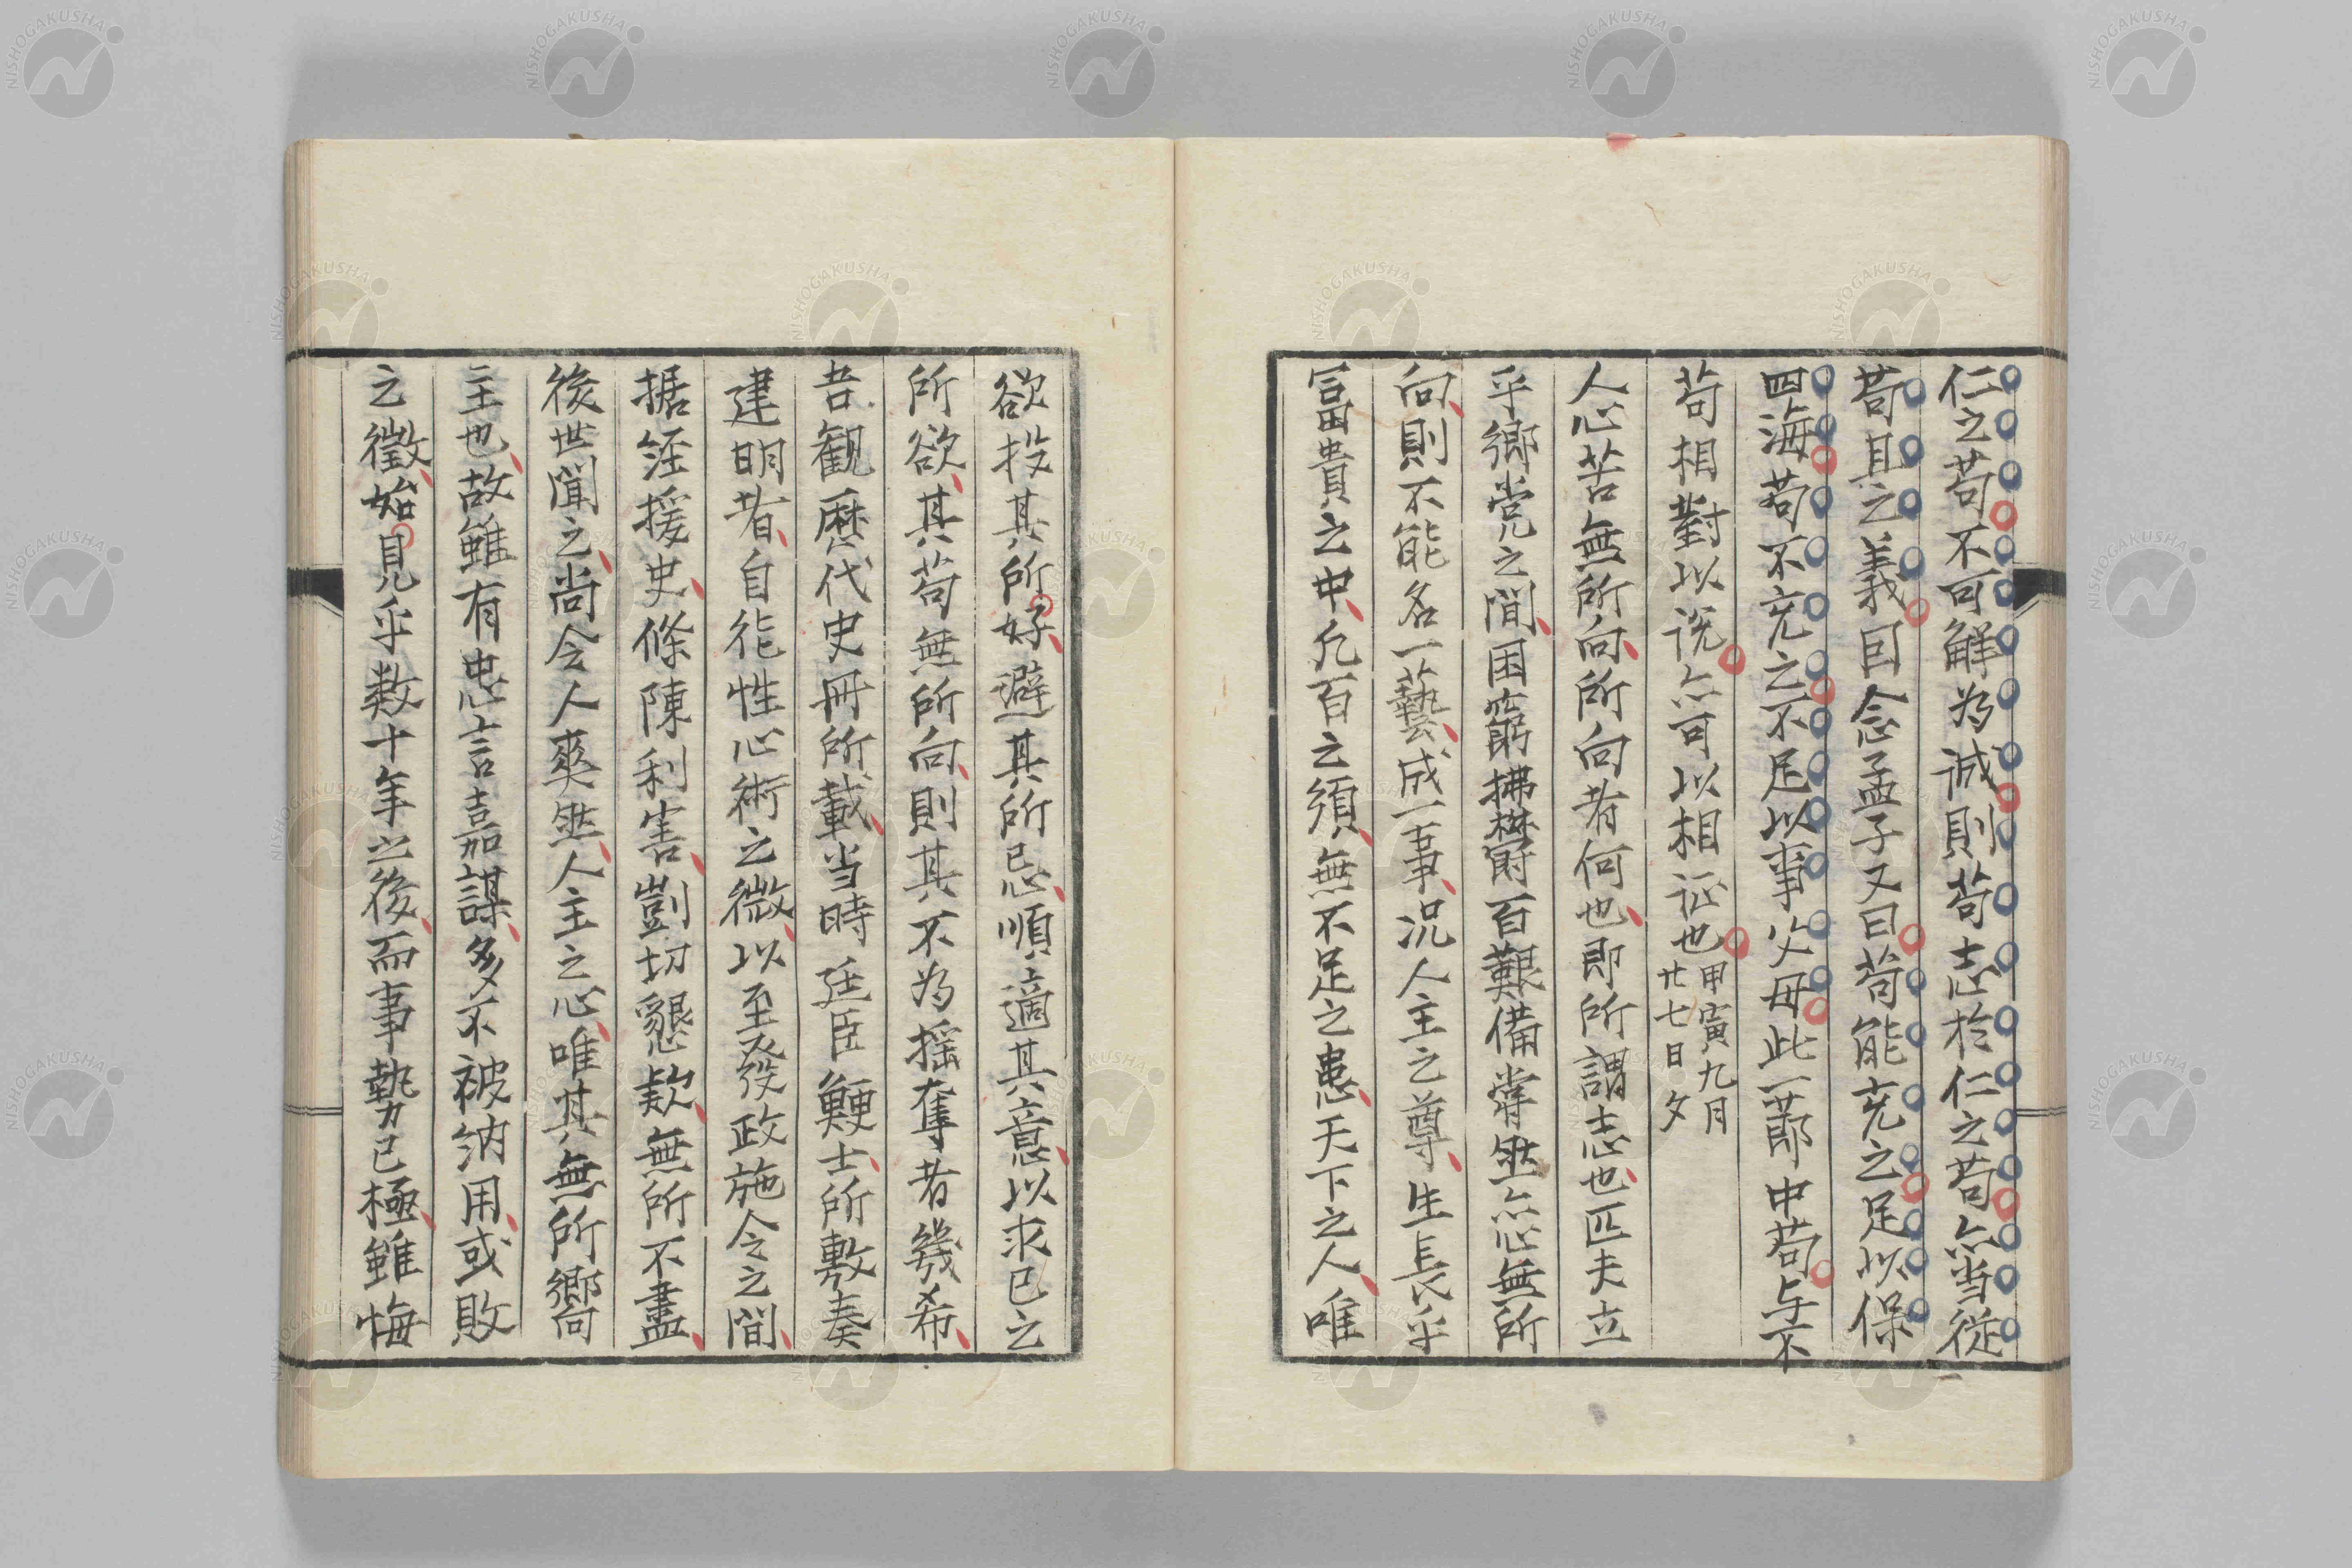 仁之苟不可解為誠則苟志於仁之苟亦当從
苟且之義因念孟子又曰苟能充之足以保
四海苟不充之不足以事父母此一節中苟与不
苟相對以说亦可以相证也甲寅九月
廿七日夕
人心苦無所向所向者何也即所謂志也匹夫立
乎鄉党之間困窮拂欝百艱備嘗然亦心無所
向則不能名一藝成一事况人主之尊生長乎
冨貴之中凢百之須無不足之患天下之人唯
欲投其所好避其所忌順適其意以求己之
所欲其苟無所向則其不為揺奪者幾希
吾観歴代史冊所載当時廷臣鯁士所敷奏
建明者自能性心術之微以至发政施令之間
据経援史條陳利害剴切懇欵無所不盡
後世聞之尚令人爽然人主之心唯其無所嚮
主也故雖有忠言嘉謀多不被纳用或敗
之徵始見乎数十年之後而事勢已極雖悔
NISHOGAKUSHA